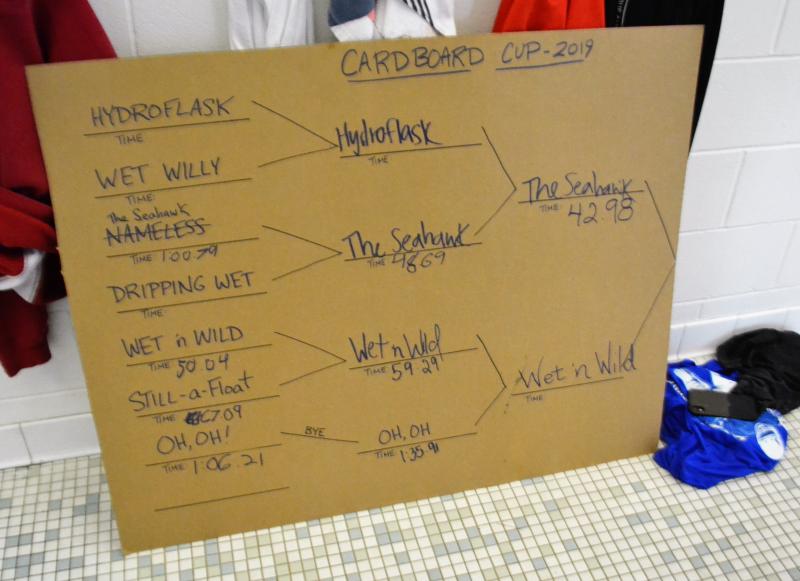 CARDBOARD CUP-2019
HYDROFLASK
TIME
WET WILLY
TIME:
The Seahawk
NAMELESS
TIME 1:00.79
DRIPPING WET
TIME:
WET 'n WILD
TIME 50.04
STILL-a-Float
TIME
OH, OH!
TIME 1:06.21
BYE
Hydroflask
TIME
The Seahawk
TIME 48.69
Wet n Wild
TIME 59.29
OH, OH
TIME 1:35.91
The Seahawk
TIME: 42.98
Wet 'n Wild
TIME